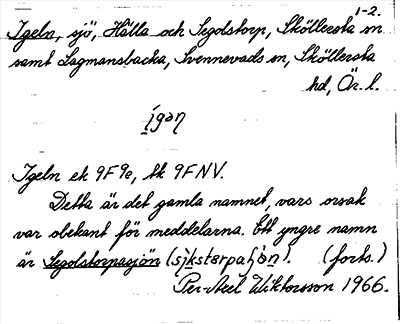 1-2.
Igeln, sjö, Hälla och Segolstorp, Sköllersta sn
samt Lagmansbacka, Svennevads sn, Sköllersta
hd, Är. l.
Igeln ek 9F9e, tk 9FNV.
Detta är det gamla namnet, vars orsak
var obekant för meddelarna. Ett yngre namn
är Segolstorpasjön (forts.)
Per-Axel Wiktorsson 1966.